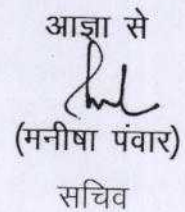 आज्ञा से
(मनीषा पंवार)
सचिव